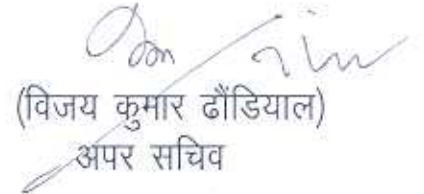 (विजय कुमार ढौंडियाल)
अपर सचिव